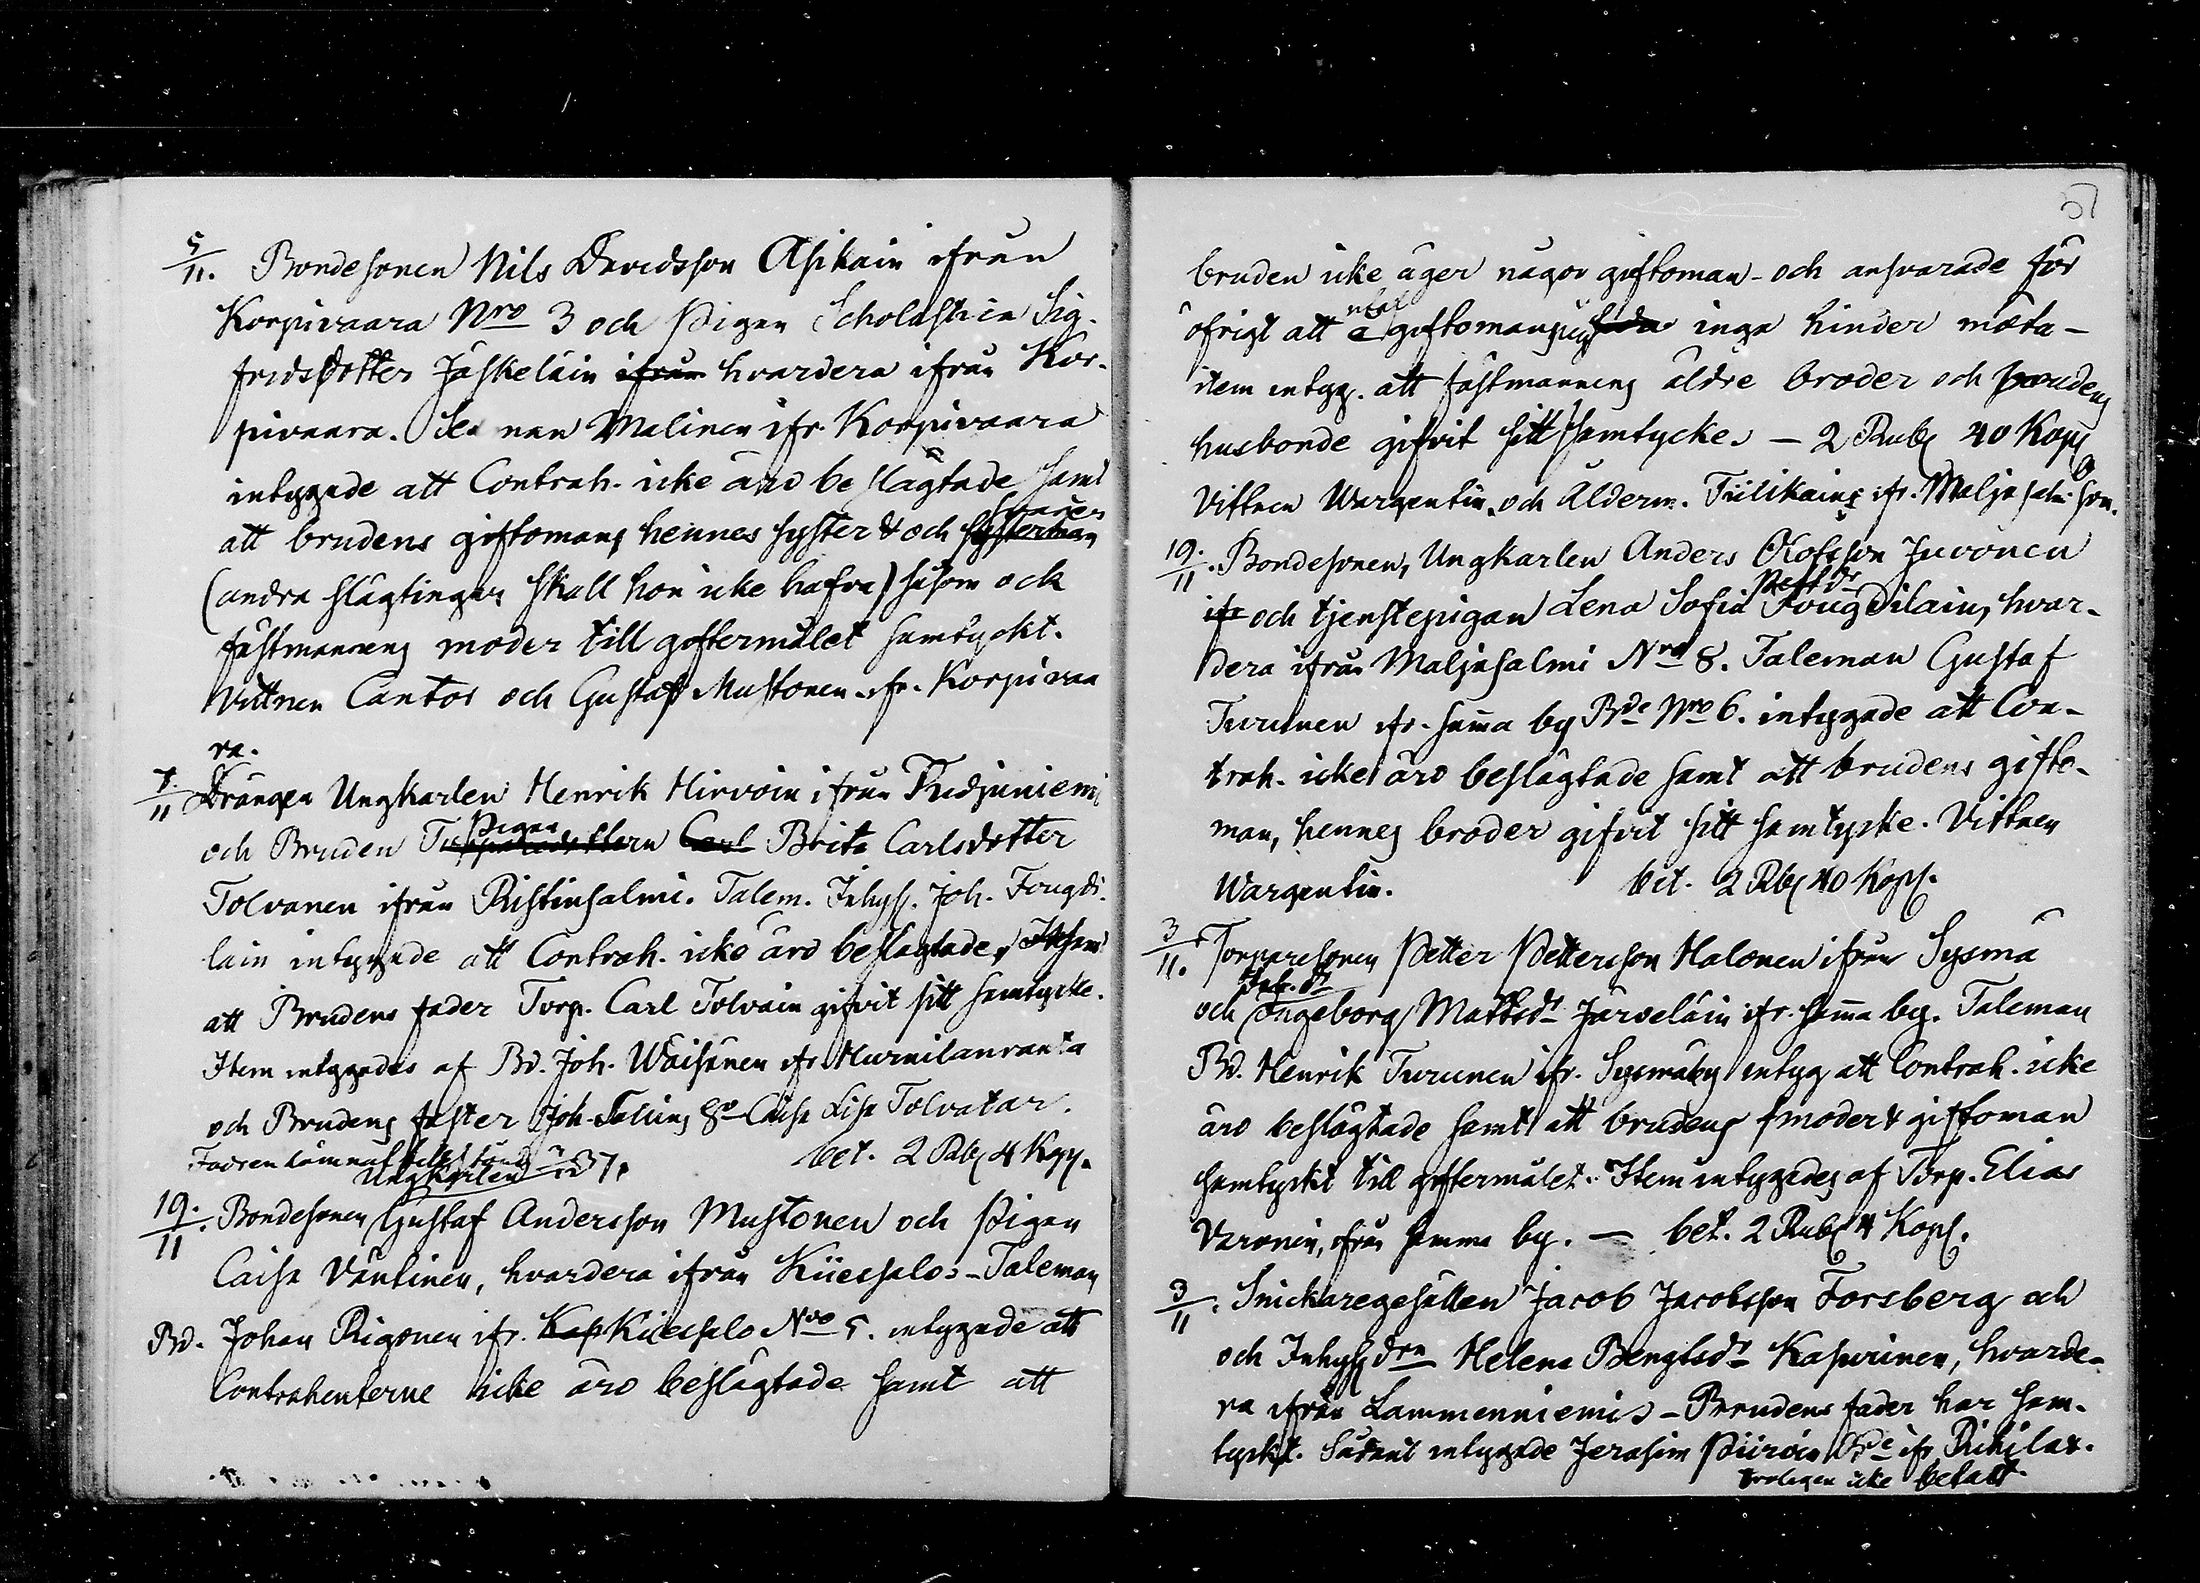 5/11. Bondesonen Nils Davidsson Asikain ifrån
Korpivaara Nro 3 och Pigan Scholastica Sig-
fridsdotter Jäskeläin ifrån hvardera ifrån Kor-
pivaara. man Malinen ifr. Korpivaara
intygade att Contrah. icke äro beslägtade samt
svåger
att brudens giftomans hennes syster & och systerman
(andra slägtingar skall hon icke hafva) såsom ock
fästmannens moder till giftermålet samtyckt.
Vittnen Cantor och Gustaf Mustonen ifr. Korpivaa
ra.
7/11 Drängen Ungkarlen Henrik Hirvoin ifrån
Pigan
och Bruden Carl Brita Carlsdotter
Tolvanen ifrån Ristinsalmi. Talem. Inhys. Joh. Fougdi-
lain intygade att Contrah. icke äro beslägtade,
att Brudens fader Torp. Carl Tolvain gifvit sitt samtycke.
Item intygades af Bd. Joh. Wäisänen ifr. Hurnilanranta
och Brudens faster Joh. Caisa Lisa Tolvatar.
Fadren bet. 2 Rub. 4 Kop.
Ungkarlen
19/11. Bondesonen Gustaf Andersson Mustonen och Pigan
Caisa Väntinen, hvardera ifrån Kiiessalo - Taleman
Bd. Johan Rigonen ifr. Kap Kiiessalo Nro 5. intygade att
Contrahenterne icke äro beslägtade samt att
57
bruden icke äger någon giftoman - och ansvarade för
utaf
öfrigt att giftomans inga hinder möta -
item intyg. att fästmannens äldre broder och brudens
husbonde gifvit sitt samtycke. - 2 Rub. 40 Kop.
Vittnen Wargentin och Ålderm. Tiilikains ifr. Maljasalmi son.
19/11. Bondesonen, Ungkarlen Anders Olofsson Juvonen
ifr och tjenstepigan Lena Sofia Fougdilain, hvar-
dera ifrån Maljasalmi Nro 8. Taleman Gustaf
Turunen ifr. samma by Bde Nro 6. intygade att Con-
trah. icke äro beslägtade samt att brudens gifto-
man, hennes broder gifvit sitt samtycke. Vittnen
Wargentin. bet. 2 Rb. 40 Kop.
3/11. Torparesonen Petter Pettersson Halonen ifrån Sysmä
Inh. dr
och Ingeborg Mattsdr Järveläin ifr. samma by. Taleman
Bd. Henrik Turunen ifr. Sysmäby intyg. att Contrah. icke
äro beslägtade samt att brudens moder & giftoman
samtyckt till giftermålet. Item intygades af Torp. Elias
Varonin, ifrån samma by. - bet. 2 Rub. 4 Kop.
3/11. Snickaregesällen Jacob Jacobsson Forsberg och
och Inhysdrn Helena Bengtsdr Kasurinen, hvarde-
ra ifrån Lammenniemi - Brudens fader har sam-
tyckt. Sådant intygade Jerasim Piiroin Bde ifr. Riihilax.
troligen icke betalt.